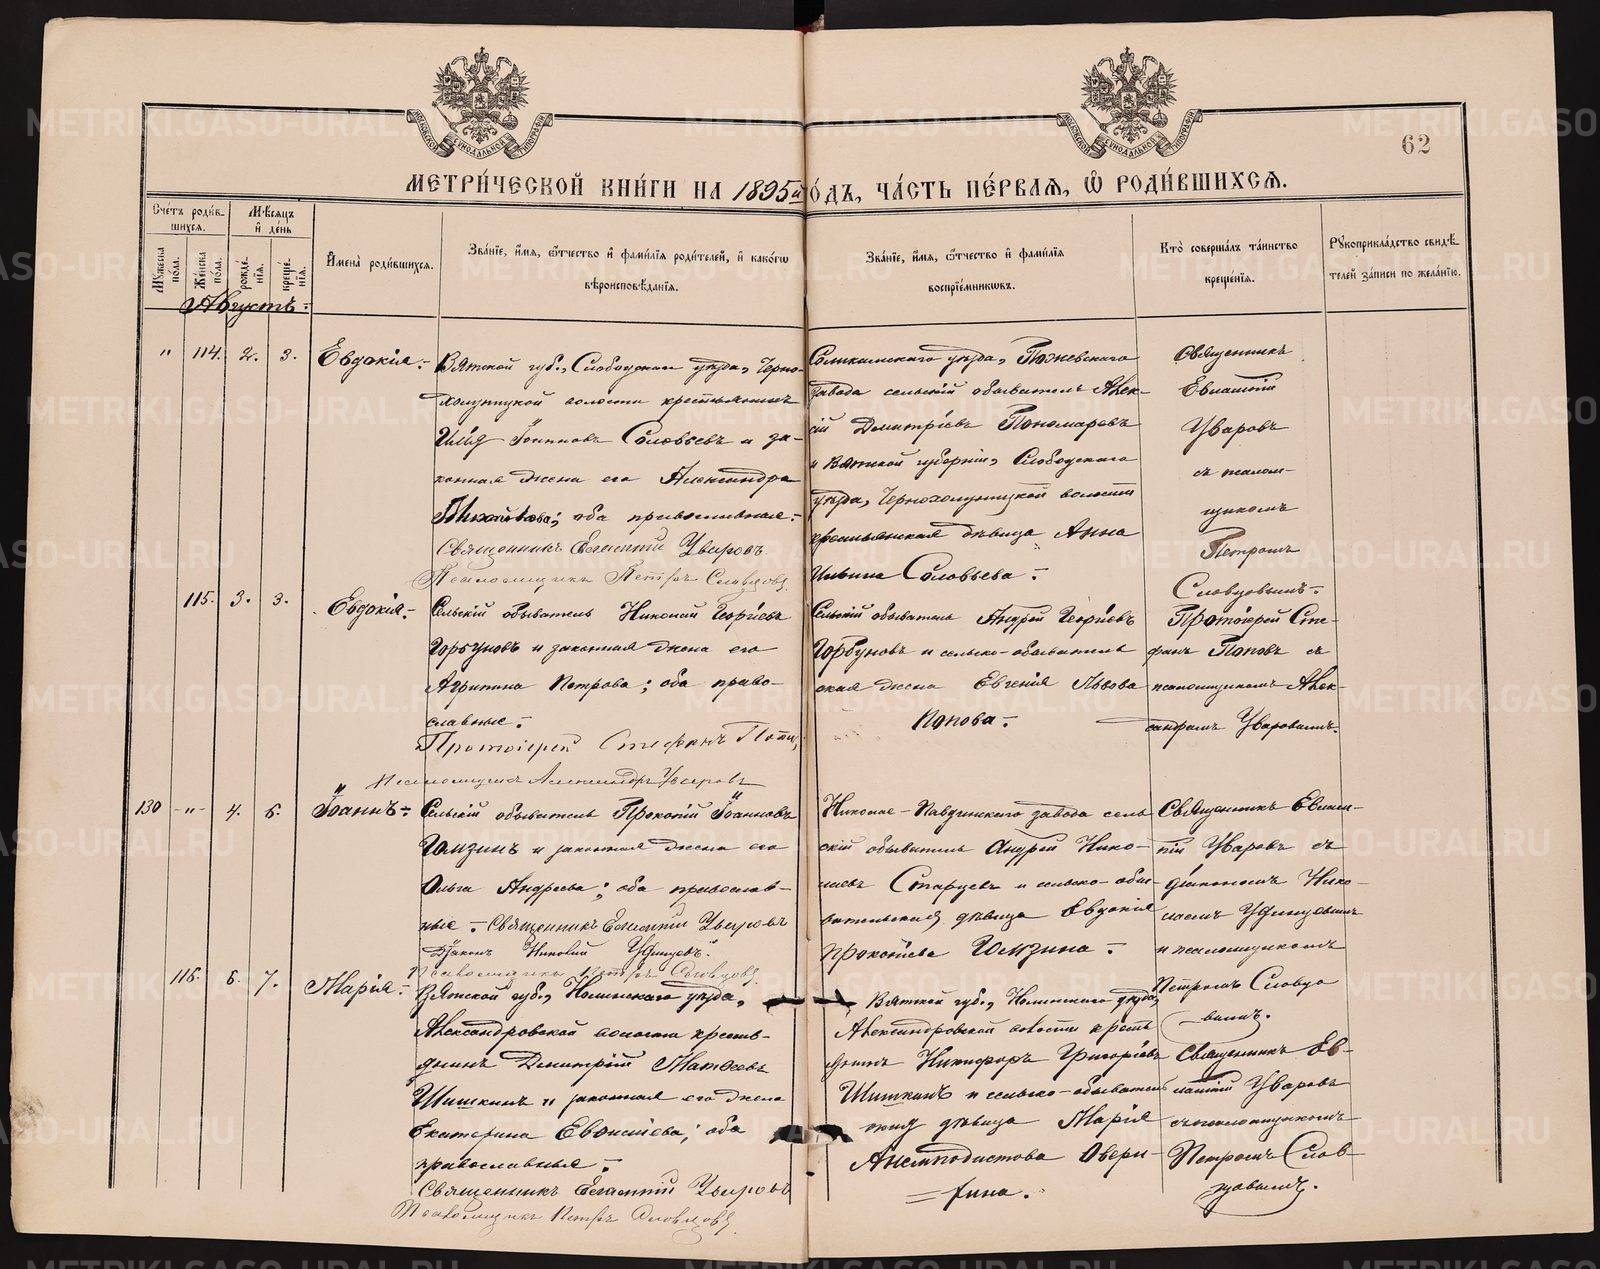 62
МЕТРИ́ЧЕСКОЙ КНИ́ГИ НА 1895й ГО́ДЪ, ЧА́СТЬ ПЕ́РВАЯ, Ѡ РОДИ́ВШИХСЯ.
Сче́тъ роди́вшихся.
Мѣ́сяцъ и де́нь
Му́жеска по́ла.
Же́нска по́ла.
рожде́нія.
креще́нія.
Имена̀ роди́вшихся.
Зва́ніе, и́мя, ѻ́тчество и фами́лія роди́телей, и како́гѡ
вѣроисповѣ́данія.
Зва́ніе, и́мя, ѻ́тчество и фами́лія
воспріе́мникѡвъ.
Кто̀ соверша́лъ та́инство
креще́нія.
Рꙋкоприкла́дство свидѣ́
телей за́писи по жела́нію.
Августъ:
" 114. 2. 3. Евдокія.
Вятской губ., Слободскаго уѣзда, Черно-
холуницкой волости крестьянинъ
Илія Іоанновъ Соловьевъ и за-
конная жена его Александра
Михайлова; оба православные.
Священникъ Евлампій Уваровъ
Псаломщикъ Петръ Словцовъ
Соликамскаго уѣзда, Пожевскаго
завода сельскій обыватель Алек-
сій Димитріевъ Пономаревъ
и Вятской губерніи, Слободскаго
уѣзда, Чернохолуницкой волости
крестьянская дѣвица Анна
Ильина Соловьева.
Священникъ
Евлампій
Уваровъ
съ псалом-
щикомъ
Петромъ
Словцовымъ.
115. 3. 3. Евдокія.
Сельскій обыватель Николай Георгіевъ
Горбуновъ и законная жена его
Агрипина Петрова; оба право-
славные.
Протоіерей Стефанъ Поповъ
Псаломщикъ Александръ Уваровъ
Сельскій обыватель Андрей Георгіевъ
Горбуновъ и сельско-обыватель
ская жена Евгенія Львова
Попова.
Протоіерей Сте-
фанъ Поповъ съ
псаломщикомъ Алек-
сандромъ Уваровымъ.
130 -"- 4. 6. Іоаннъ
Сельскій обыватель Прокопій Іоанновъ
Гамзинъ и законная жена его
Ольга Андреева; оба православ-
ные. Священникъ Евлампій Уваровъ
Діаконъ Николай Удинцевъ.
Псаломщикъ Петръ Словцовъ
Николае-Павдинскаго завода сель
скій обыватель Андрей Нико-
лаевъ Старцевъ и сельско-обы-
вательская дѣвица Евдокія
Прокопіева Гамзина.
Священникъ Евлам-
пій Уваровъ съ
діакономъ Нико-
лаемъ Удинцовымъ
и псаломщикомъ
Петромъ Словцо
вымъ.
116. 6. 7. Марія.
Вятской губ., Нолинскаго уѣзда,
Александровской волости кресть-
янинъ Димитрій Матѳеевъ
Шишкинъ и законная его жена
Екатерина Евсиѳіева; оба
православные.
Священникъ Евлампій Уваровъ
Псаломщикъ Петръ Словцовъ
Вятской губ., Нолинскаго уѣзда
Александровской волости кресть
янинъ Никифоръ Григорьевъ
Шишкинъ и сельско-обыватель
ская дѣвица Марія
Анемподистова Овери-
на.
Священникъ Ев-
лампій Уваровъ
съ псаломщикомъ
Петромъ Слов-
цовымъ.
METRIKI.GASO-URAL.RU